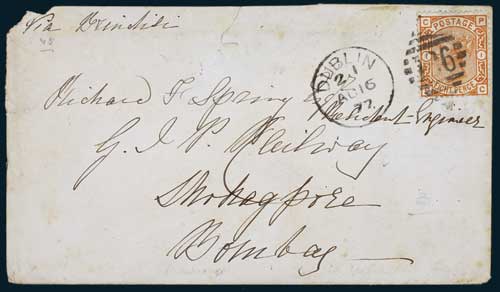 Via Brindisi
48
POSTAGE
EIGHT PENCE
C P
P C
6
DUBLIN
AU 16
77
Richard F Spring Esq
Resident Engineer
G. I P. Railway
Sholapore
Bombay